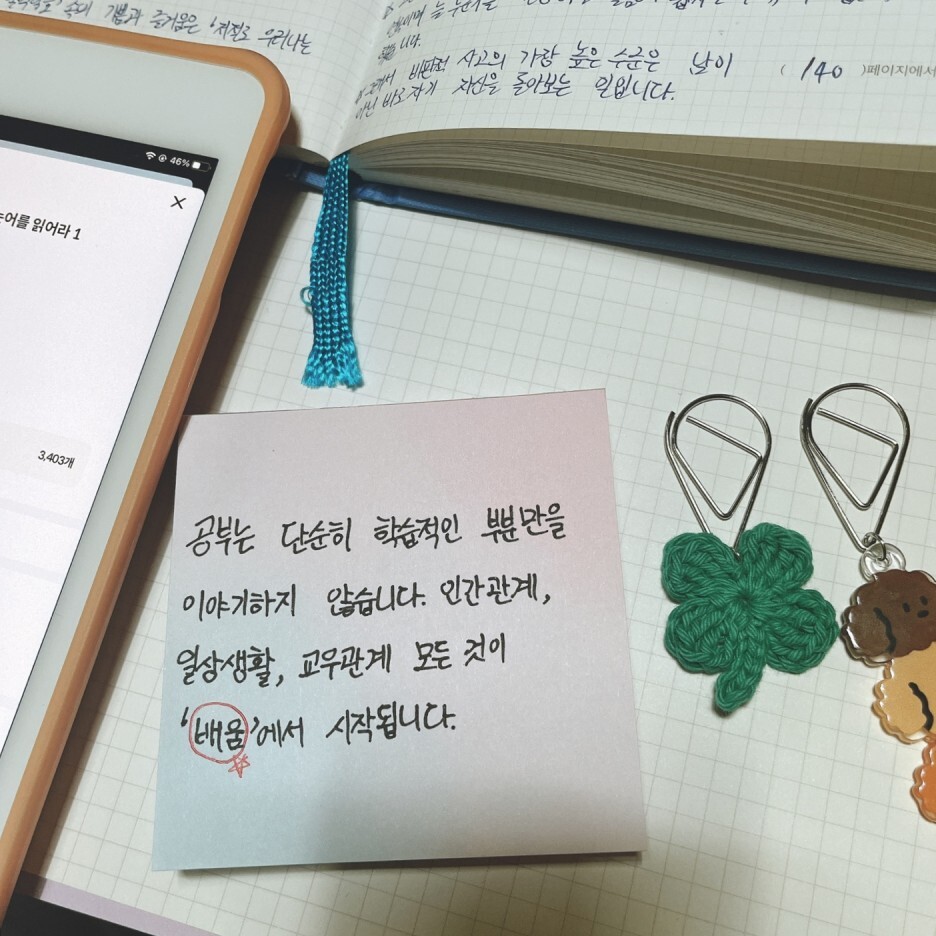 즐거움은
우리나는
니다.
비판적 사고의 가장 높은 수준은 남이
아닌 바로 자기 자신을 돌아보는 일입니다.
( 140 )페이지에서
46%
어를 읽어라 1
3,403개
공부는 단순히 학습적인 부분만을
이야기하지 않습니다. 인간관계,
일상생활, 교우관계 모든 것이
'배움'에서 시작됩니다.